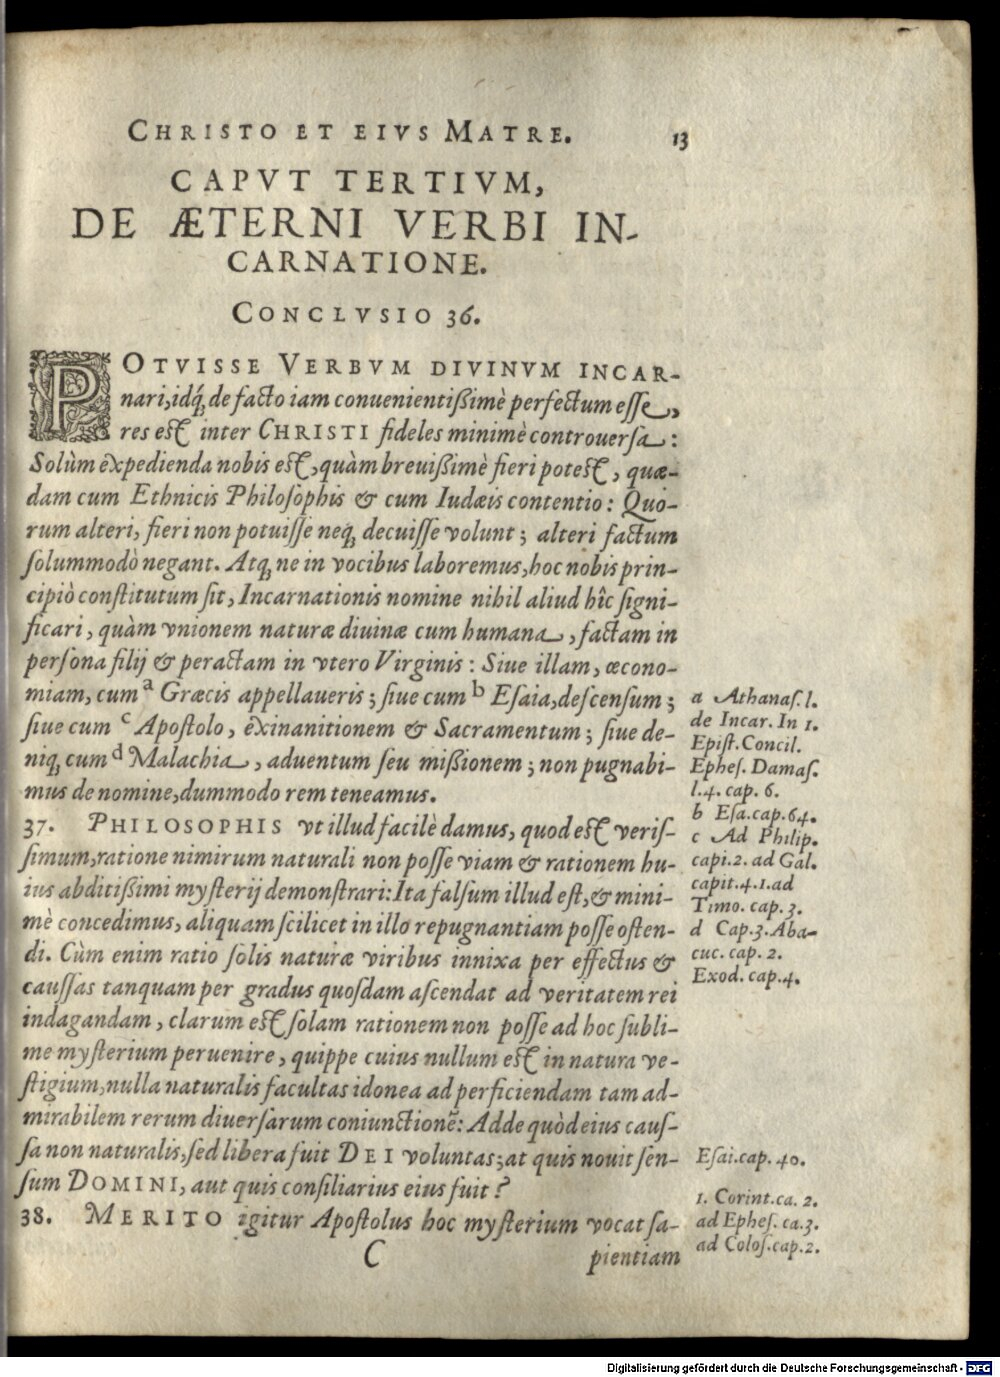 CHRISTO ET EIVS MATRE. 13
CAPVT TERTIVM,
DE ÆTERNI VERBI IN-
CARNATIONE.
CONCLVSIO 36.
POTVISSE VERBVM DIVINVM INCAR-
nari, idq́; de facto iam conuenientißimè perfectum esse,
res est inter CHRISTI fideles minimè controuersa:
Solùm expedienda nobis est, quàm breuißimè fieri potest, quæ-
dam cum Ethnicis Philosophis & cum Iudæis contentio: Quo-
rum alteri, fieri non potuisse neq; decuisse volunt; alteri factum
solummodò negant. Atq; ne in vocibus laboremus, hoc nobis prin-
cipiò constitutum sit, Incarnationis nomine nihil aliud hîc signi-
ficari, quàm vnionem naturæ diuinæ cum humana, factam in
persona filij & peractam in vtero Virginis: Siue illam, œcono-
miam, cum a Græcis appellaueris; siue cum b Esaia, descensum;
siue cum c Apostolo, exinanitionem & Sacramentum; siue de-
niq; cum d Malachia, aduentum seu mißionem; non pugnabi-
mus de nomine, dummodo rem teneamus.
a Athanas. l.
de Incar. In 1.
Epist. Concil.
Ephes. Damas.
l.4. cap. 6.
b Esa.cap.64.
c Ad Philip.
capi.2. ad Gal.
capit.4.1.ad
Timo. cap. 3.
d Cap.3.Aba-
cuc. cap. 2.
Exod. cap.4.
37. PHILOSOPHIS vt illud facilè damus, quod est veris-
simum, ratione nimirum naturali non posse viam & rationem hu-
ius abditißimi mysterij demonstrari: Ita falsum illud est, & mini-
mè concedimus, aliquam scilicet in illo repugnantiam posse osten-
di. Cùm enim ratio solis naturæ viribus innixa per effectus &
caussas tanquam per gradus quosdam ascendat ad veritatem rei
indagandam, clarum est solam rationem non posse ad hoc subli-
me mysterium peruenire, quippe cuius nullum est in natura ve-
stigium, nulla naturalis facultas idonea ad perficiendam tam ad-
mirabilem rerum diuersarum coniunctionẽ: Adde quòd eius caus-
sa non naturalis, sed libera fuit DEI voluntas; at quis nouit sen-
sum DOMINI, aut quis consiliarius eius fuit?
Esai.cap. 40.
38. MERITO igitur Apostolus hoc mysterium vocat sa-
1. Corint.ca. 2.
ad Ephes. ca.3.
ad Colos.cap.2.
C pientiam
Digitalisierung gefördert durch die Deutsche Forschungsgemeinschaft - DFG